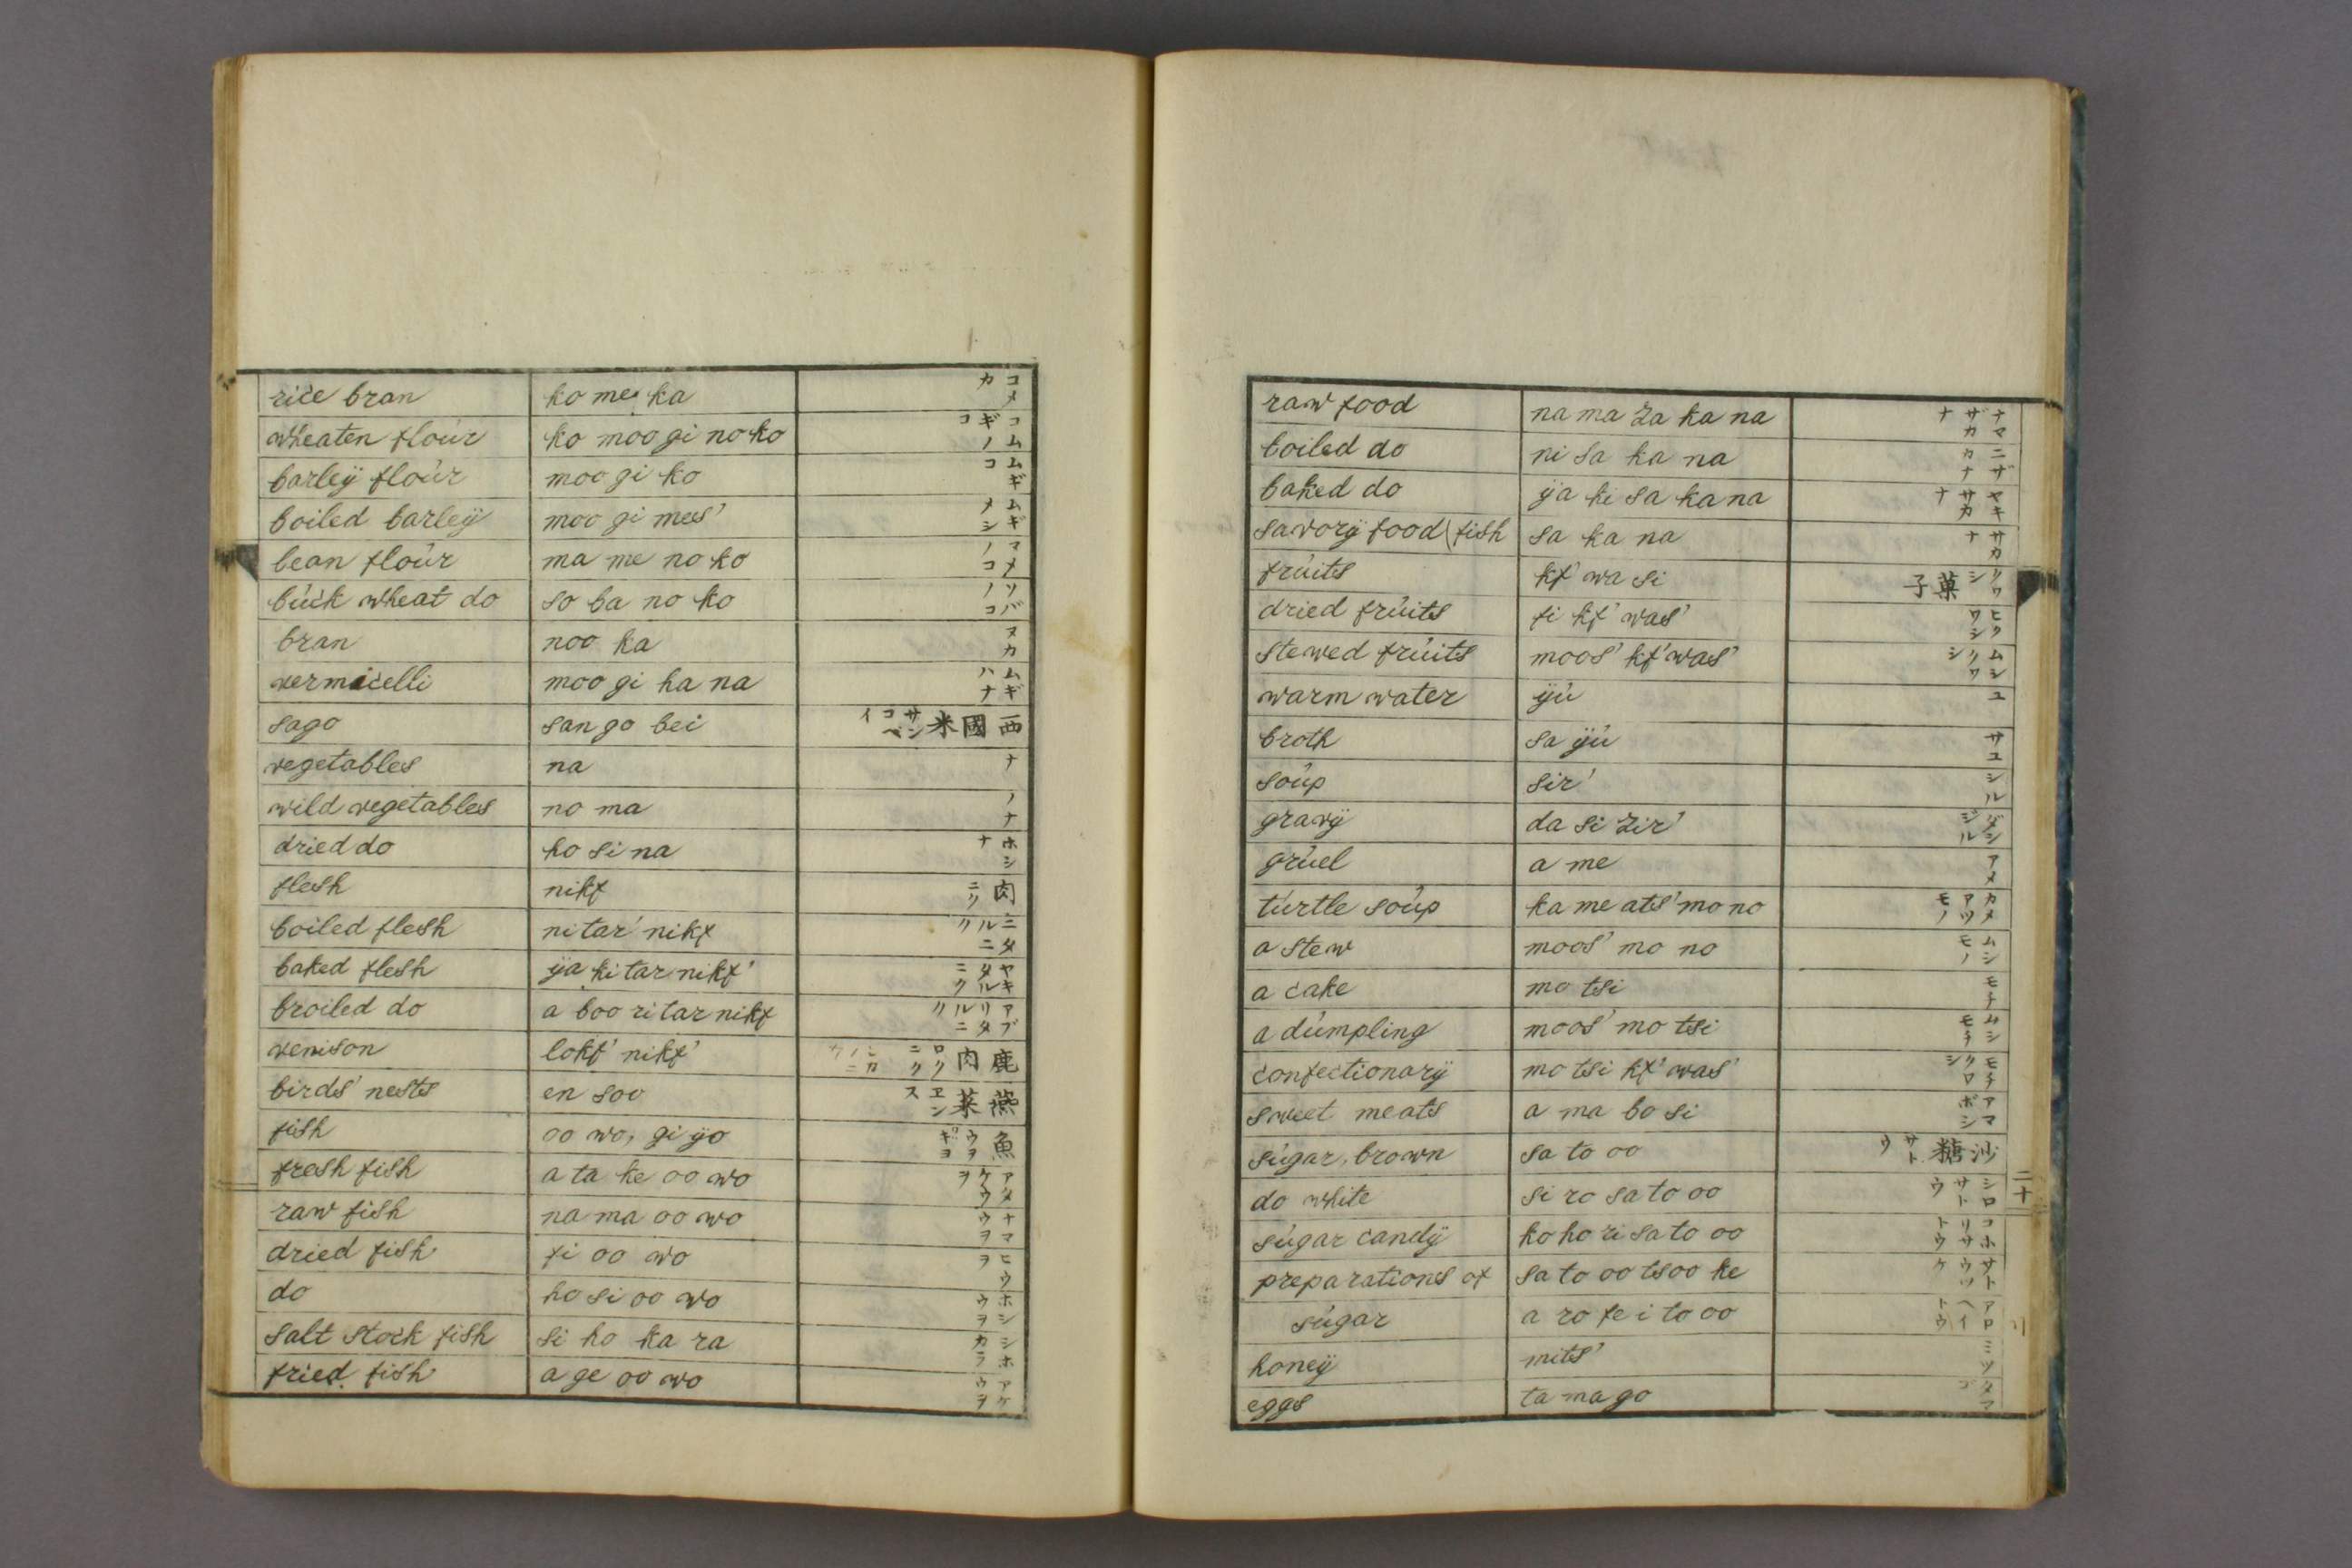 rice bran ko me ka コメカ
wheaten flour ko moo gi no ko コムギノコ
barleÿ flour moo gi ko ムギコ
boiled barleÿ moo gi mes' ムギメシ
bean flour ma me no ko マメノコ
buck wheat do so ba no ko ソバノコ
bran noo ka ヌカ
vermicelli moo gi ha na ムギハナ
sago san go bei 西國米 サンコベイ
vegetables na ナ
wild vegetables no ma ノナ
dried do ho si na ホシナ
flesh nikf 肉 ニク
boiled flesh ni tar' nikf ニタルニク
baked flesh ÿa ki tar nikf' ヤキタルニク
broiled do a boo ri tar nikf アブリタルニク
venison lokf' nikf' 鹿肉 ロクニク
birds' nests en soo 燕菜 ヱンス
fish oo wo, gi ÿo 魚 ウヲ ギヨ
fresh fish a ta ke oo wo アタケウヲ
raw fish na ma oo wo ナマウヲ
dried fish fi oo wo ヒウヲ
do ho si oo wo ホシウヲ
salt stock fish si ho ka ra シホカラ
fried fish a ge oo wo アゲウヲ
raw food na ma za ka na ナマザカナ
boiled do ni sa ka na ニザカナ
baked do ÿa ki sa ka na ヤキサカナ
savorÿ food (fish sa ka na サカナ
fruits kf' wa si 菓子 クワシ
dried fruits fi kf' was' ヒクワシ
stewed fruits moos' kf' was' ムシクワシ
warm water ÿu ユ
broth sa ÿu サユ
soup sir' シル
gravÿ da si zir' ダシジル
gruel a me アメ
turtle soup ka me ats' mo no カメアツモノ
a stew moos' mo no ムシモノ
a cake mo tsi モチ
a dumpling moos' mo tsi ムシモチ
confectionarÿ mo tsi kf' was' モチクワシ
sweet meats a ma bo si アマボシ
sugar, brown sa to oo 沙糖 サトウ
do white si ro sa to oo シロサトウ
二十
sugar candÿ ko ho ri sa to oo コホリサトウ
preparations of sa to oo tsoo ke サトウツケ
sugar a ro fe i to oo アロヘイトウ
honeÿ mits' ミツ
eggs ta ma go タマゴ